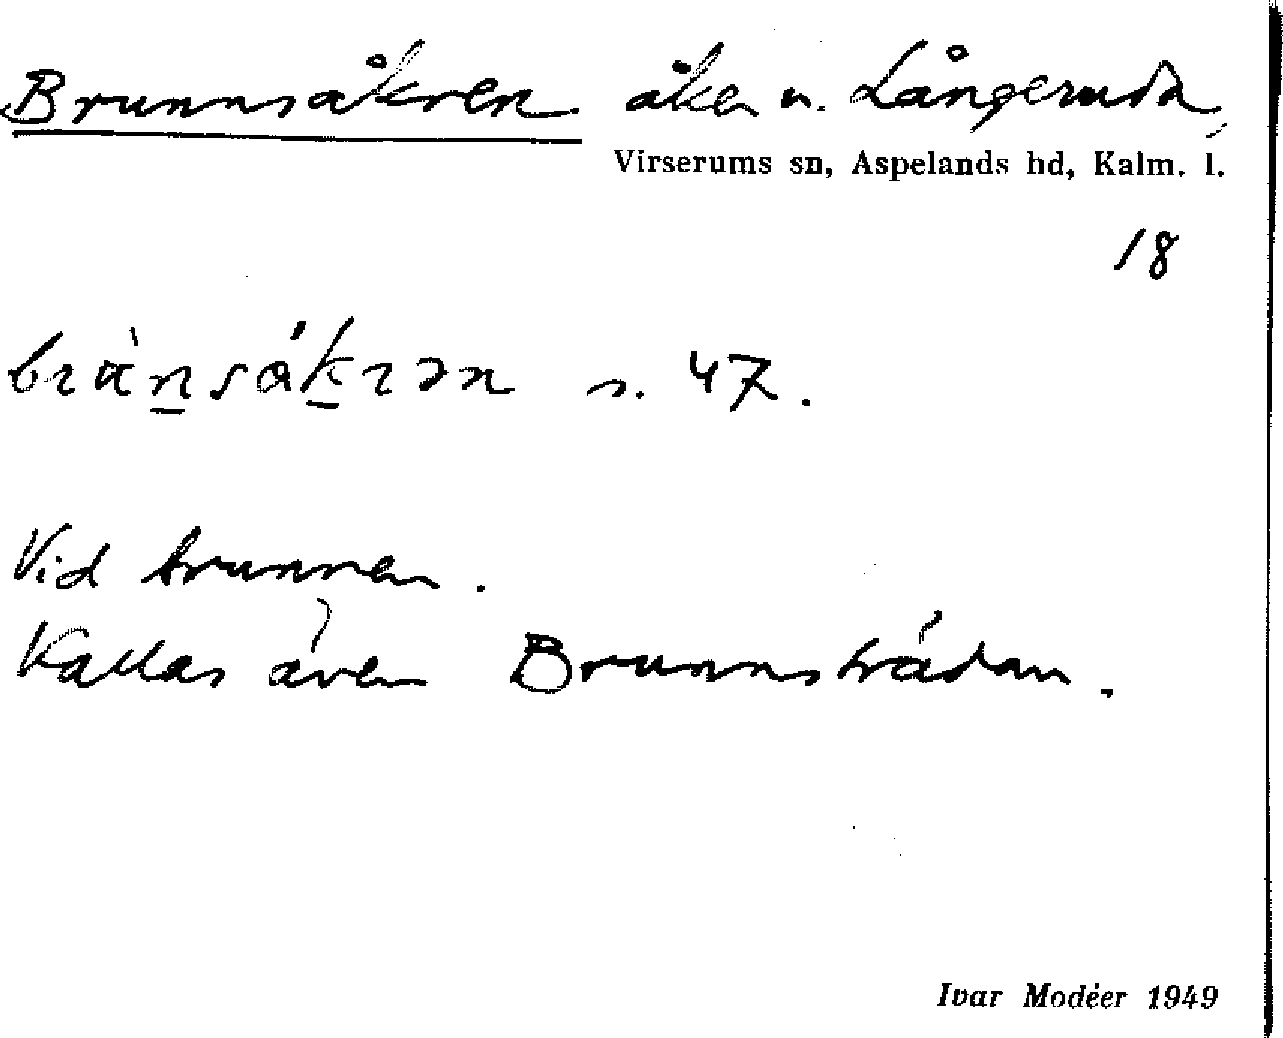 Brunnsåkren åker u. Långeruda,
Virserums sn, Aspelands hd, Kalm. l.
18
s. 47.
Vid brunnen.
Kallas även Brunnsträdan.
Ivar Modéer 1949